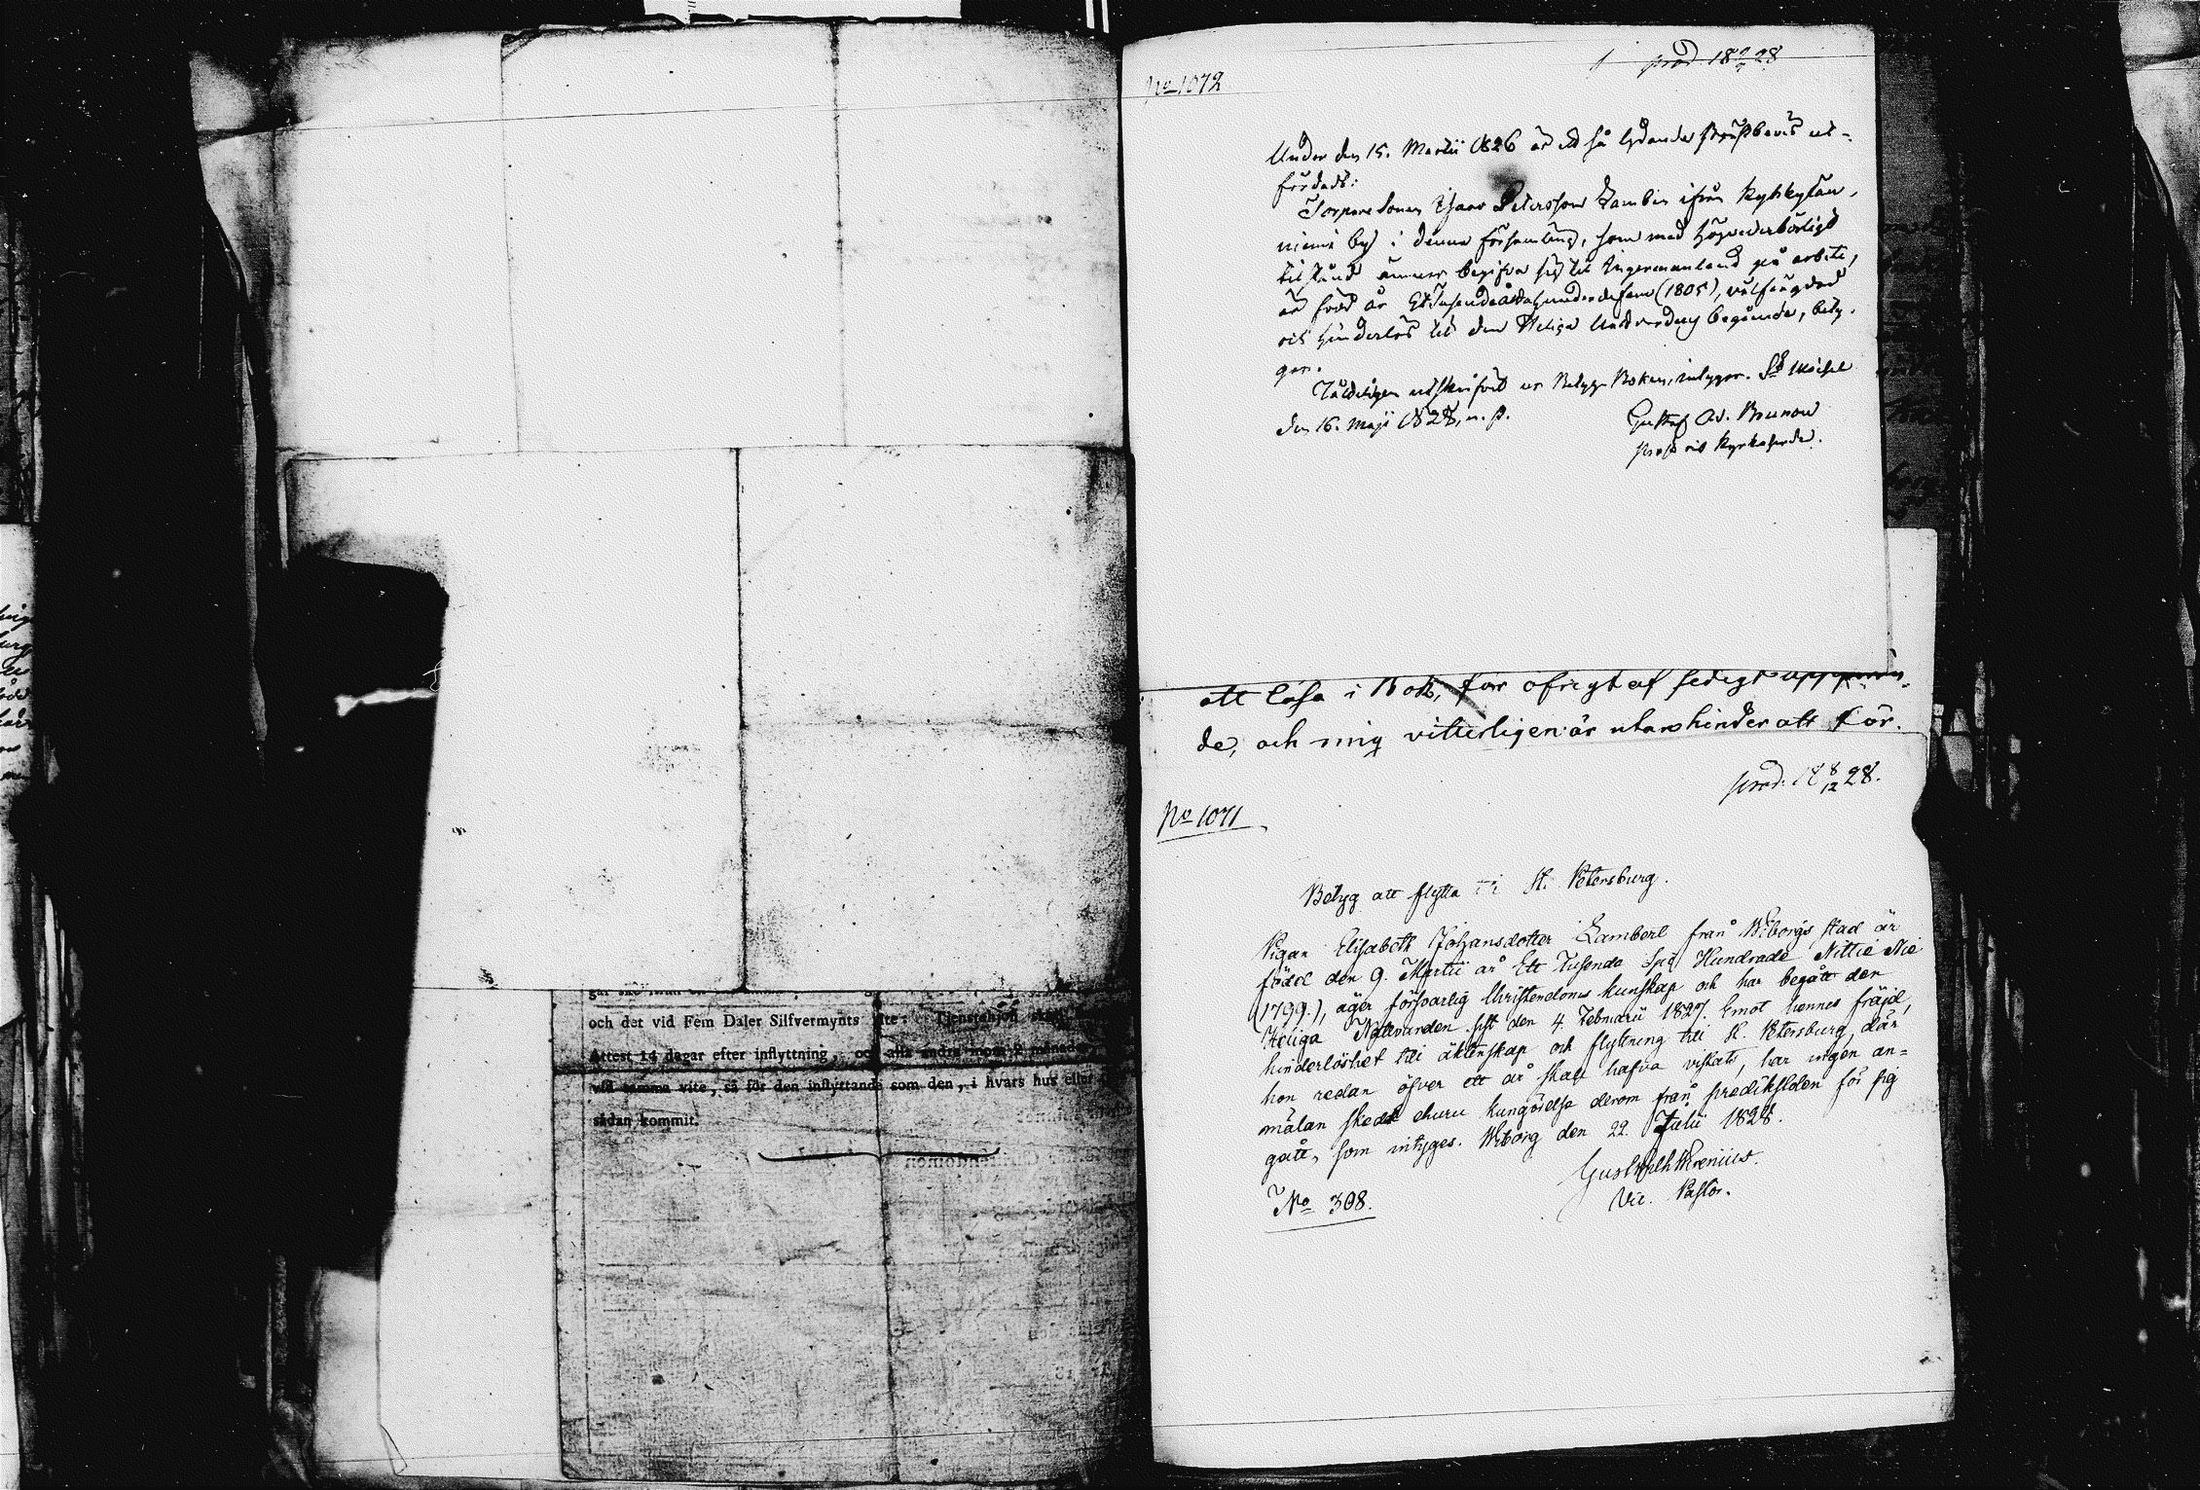 och det vid Fem Daler Silfvermynts vite: Tjenstehjon
Attest 14 dagar efter inflyttning, och alla andra inom 2 månader
vid samma vite, så för den inflyttande som den, i hvars hus eller
sådan kommit.
No 1072
prod 18 9/7 28
Under den 15. Martii 1826 är ett så lydande prestbevis ut-
färdadt:
Torpare Sonen Isaac Petersson Lambin ifrån Kyhkylän-
niemi by i denna församling, som med högvederbörligt
tilstånd ämnar begifva sig til Ingermanland på arbete,
är född år Ett Tusende Åttahundrade fem (1805), välfrägdad
och hinderlös til den Heliga Nattvardens begående, bety-
gar.
utskrifvit ur Betygs Boken, intygar. St Michel
den 16. Maji 1828, n. s.
Gustaf Ad. Brunow
Prost och Kyrkoherde.
att läsa i Bok, för öfrigt af sedigt uppföran-
de, och mig vitterligen är utan hinder att för-
prod. 18 8/12 28.
No 1071
Betyg att flytta til St. Petersburg.
Pigan Elisabeth Johansdotter Lambert från Wiborgs stad är
född den 9. Martii år Ett Tusende Sju Hundrade Nittie Nie
(1799.), äger försvarlig Christendoms kunskap och har begått den
Heliga Nattvarden sist den 4. Februarii 1827. Emot hennes fräjd,
hinderlöshet till äktenskap och flyttning till St. Petersburg, där
hon redan öfver ett år skall hafva vistats, har ingen an-
mälan skedt ehuru kungörelse derom från predikstolen för sig
gått, som intyges. Wiborg den 22. Julii 1828.
Gust. Wilh. Wrenius.
Vic. Pastor.
No 308.